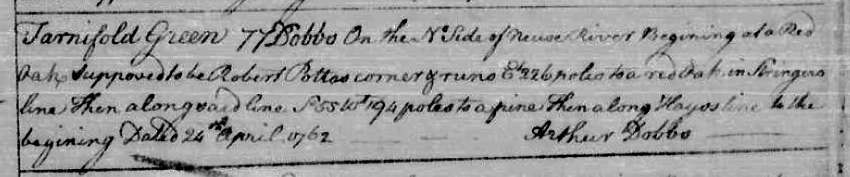 Tarnifold Green 77 Dobbs On the No Side of Neuse River Begining at a Red
Oak supposed to be Robert Pottas corner & runs Et 226 poles to a red Oak in Stringers
line Then along said line So 55 Wt 194 poles to a pine Then along Hayos line to the
begining Dated 24th April 1762 Arthur Dobbs